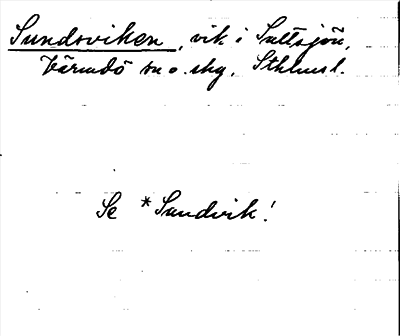 Sundsviken, vik i Saltsjön,
Värmdö sn o. skg, Sthlms l.
Se *Sundvik!